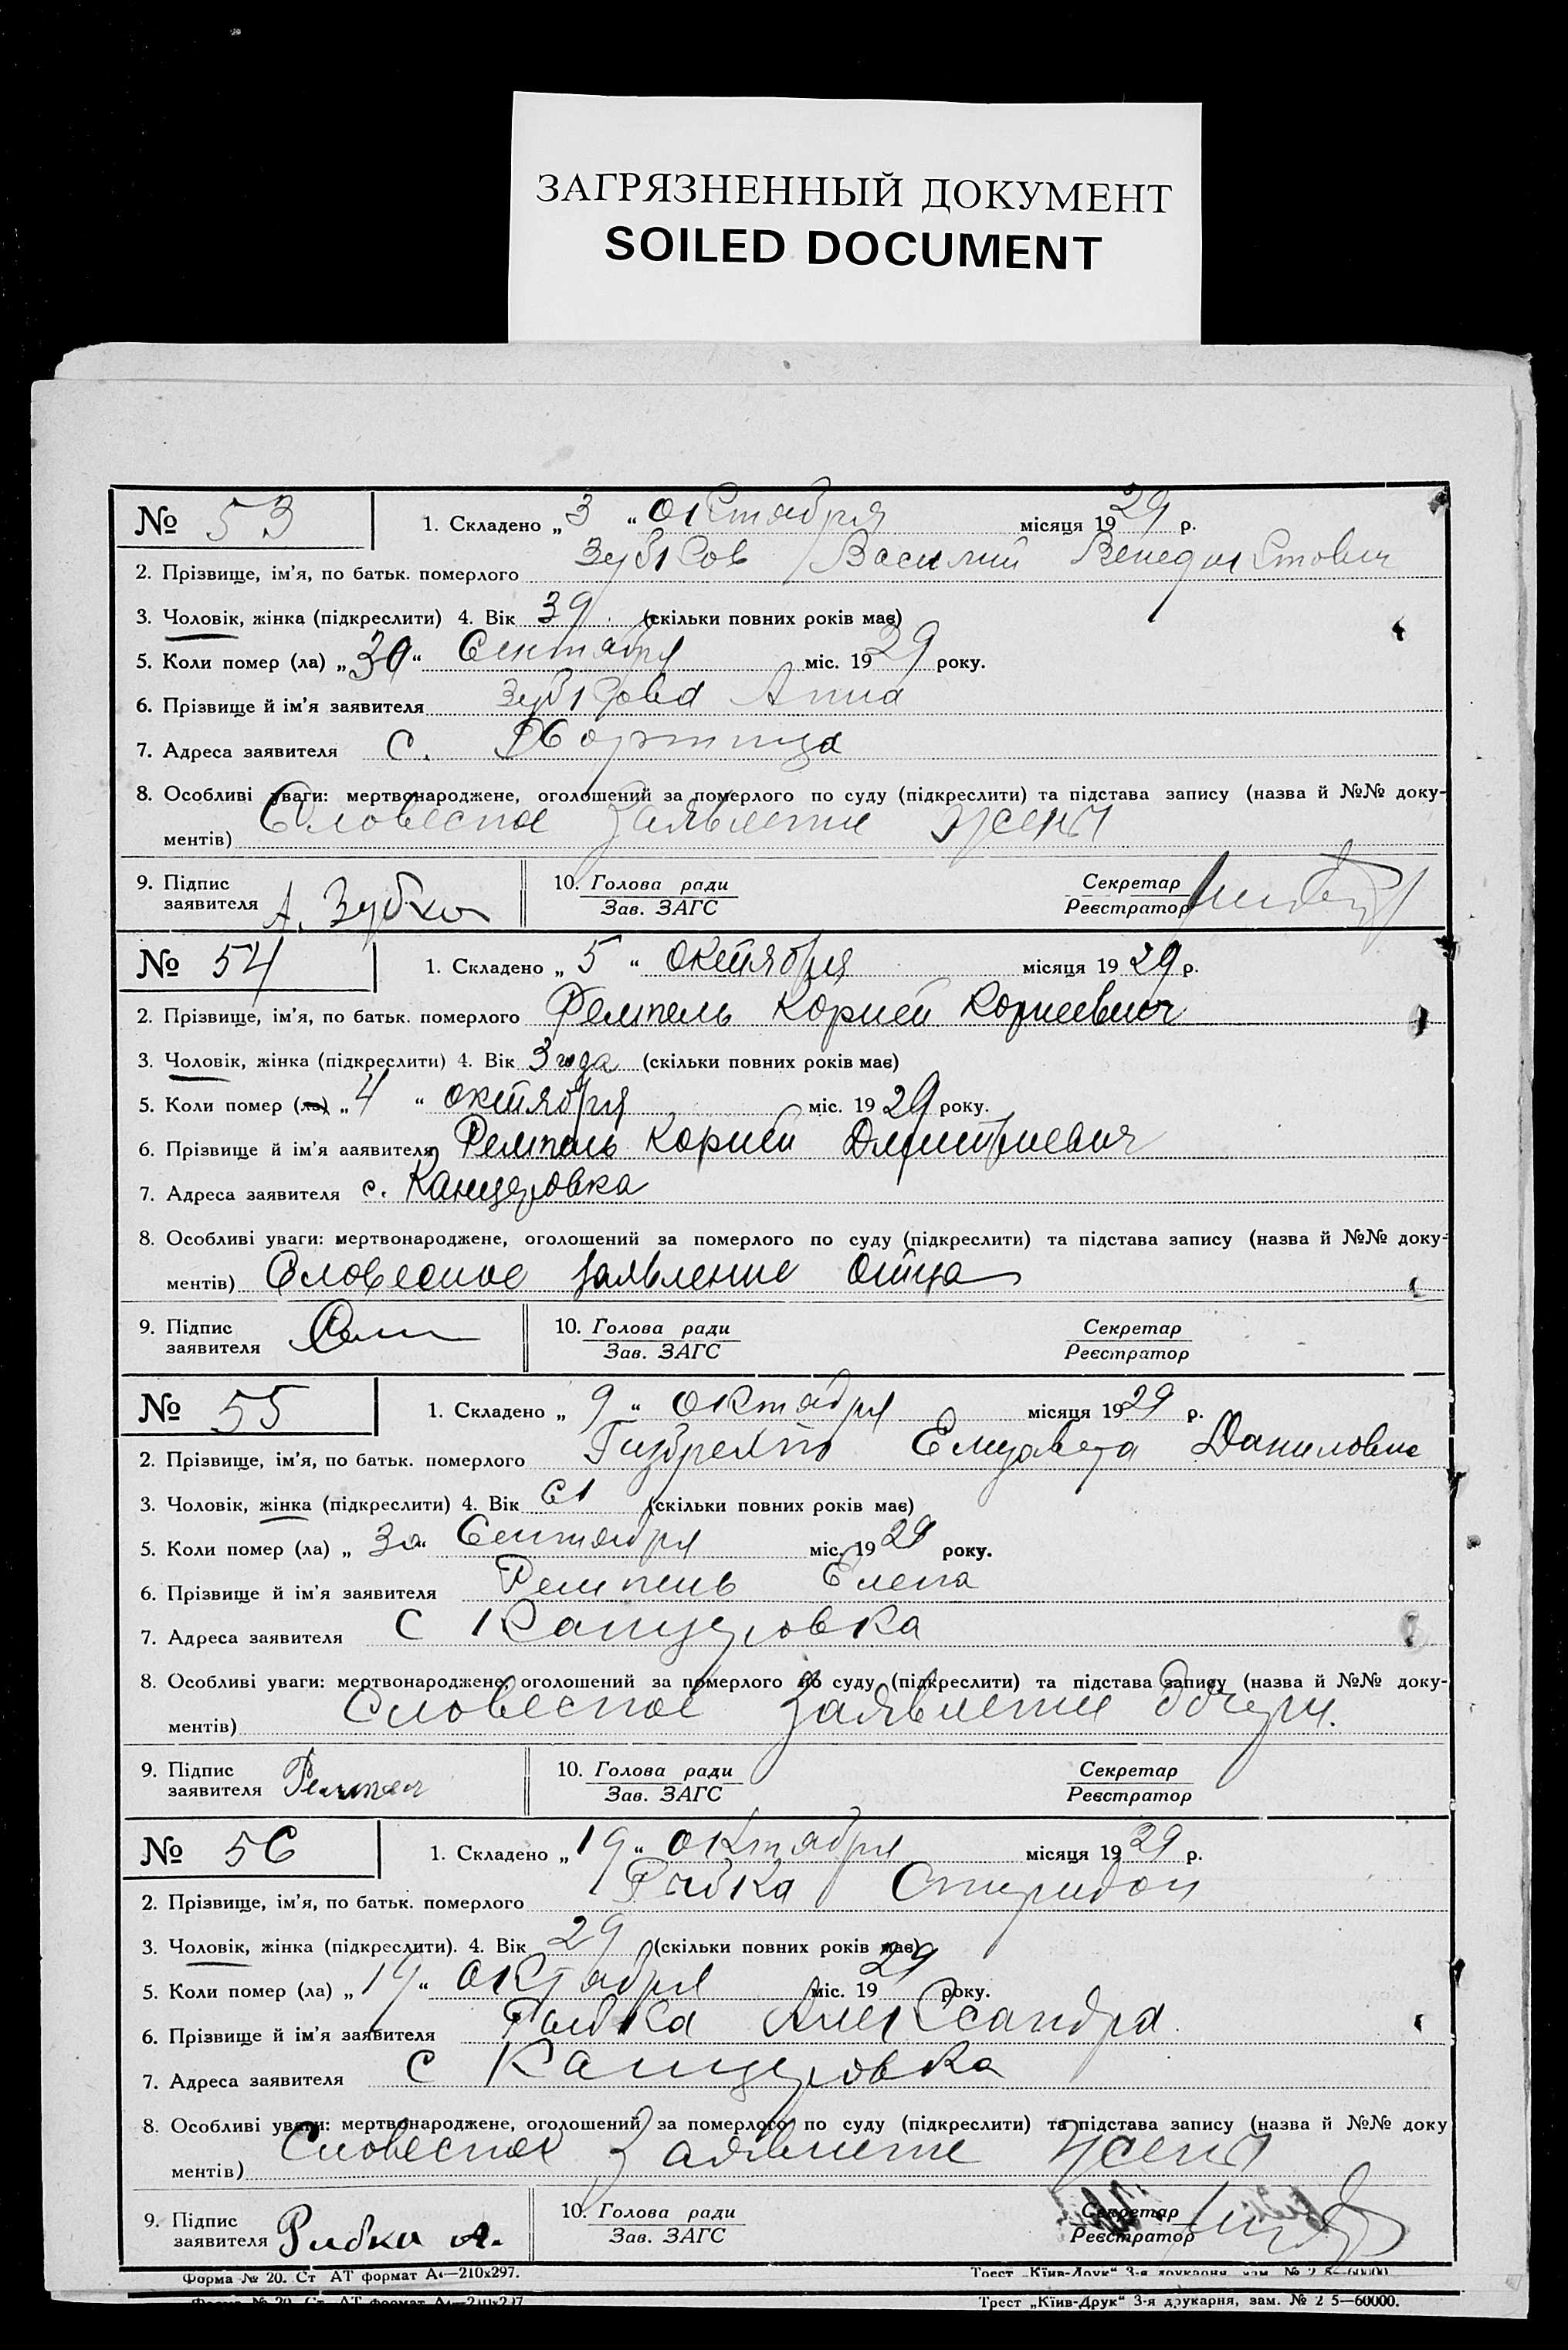 ЗАГРЯЗНЕННЫЙ ДОКУМЕНТ
SOILED DOCUMENT
№ 53 1. Складено „3“ октября місяця 1929 р.
2. Прізвище, ім’я, по батьк. померлого Зубков Василий Венедиктович
3. Чоловік, жінка (підкреслити) 4. Вік 39 (скільки повних років має)
5. Коли помер (ла) „30“ Сентября міс. 1929 року.
6. Прізвище й ім’я заявителя Зубкова Анна
7. Адреса заявителя С. Хортица
8. Особливі уваги: мертвонароджене, оголошений за померлого по суду (підкреслити) та підстава запису (назва й №№ доку-
ментів) Словесное Заявление жены
9. Підпис заявителя А. Зубков 10. Голова ради Секретар
Зав. ЗАГС Реєстратор
№ 54 1. Складено „5“ октября місяця 1929 р.
2. Прізвище, ім’я, по батьк. померлого Ремпель Корней Корнеевич
3. Чоловік, жінка (підкреслити) 4. Вік 3 года (скільки повних років має)
5. Коли помер (ла) „4“ октября міс. 1929 року.
6. Прізвище й ім’я ааявителя Ремпель Корней Дмитриевич
7. Адреса заявителя с. Канцеровка
8. Особливі уваги: мертвонароджене, оголошений за померлого по суду (підкреслити) та підстава запису (назва й №№ доку-
ментів) Словесное заявление отца
9. Підпис заявителя 10. Голова ради Секретар
Зав. ЗАГС Реєстратор
№ 55 1. Складено „9“ октября місяця 1929 р.
2. Прізвище, ім’я, по батьк. померлого Гизбрехт Елизавета Даниловна
3. Чоловік, жінка (підкреслити) 4. Вік 61 (скільки повних років має)
5. Коли помер (ла) „30“ Сентября міс. 1929 року.
6. Прізвище й ім’я заявителя Ремпель Елена
7. Адреса заявителя С Канцеровка
8. Особливі уваги: мертвонароджене, оголошений за померлого по суду (підкреслити) та підстава запису (назва й №№ доку-
ментів) Словесное Заявление дочери.
9. Підпис заявителя Ремпель 10. Голова ради Секретар
Зав. ЗАГС Реєстратор
№ 56 1. Складено „19“ октября місяця 1929 р.
2. Прізвище, ім’я, по батьк. померлого Рыбка Спиридон
3. Чоловік, жінка (підкреслити). 4. Вік 29 (скільки повних років має)
5. Коли помер (ла) „19“ октября міс. 1929 року.
6. Прізвище й ім’я заявителя Рыбка Александра
7. Адреса заявителя С Канцеровка
8. Особливі уваги: мертвонароджене, оголошений за померлого по суду (підкреслити) та підстава запису (назва й №№ доку
ментів) Словесное Заявление жены
9. Підпис заявителя Рибка А. 10. Голова ради Секретар
Зав. ЗАГС Реєстратор
Форма № 20. Ст АТ формат А4—210х297. Трест „Київ-Друк“ 3-я друкарня, зам. № 2 5—60000
Форма № 20. Ст. АТ формат А4—210х297 Трест „Київ-Друк“ 3-я друкарня, зам. № 2 5—60000.